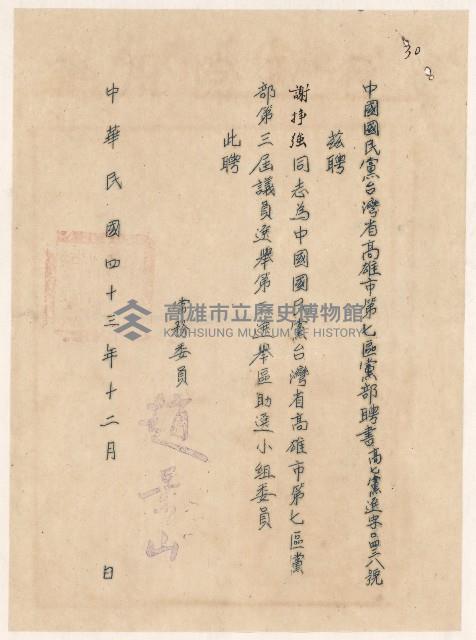 30
中國國民黨台灣省高雄市第七區黨部聘書高七黨選字第四三八號
茲聘
謝掙強同志為中國國民黨台灣省高雄市第七區黨
部第三屆議員選舉第 選舉區助選小組委員
此聘
常務委員 趙景山
中華民國四十三年十二月 日
高雄市立歷史博物館
KAOHSIUNG MUSEUM OF HISTORY